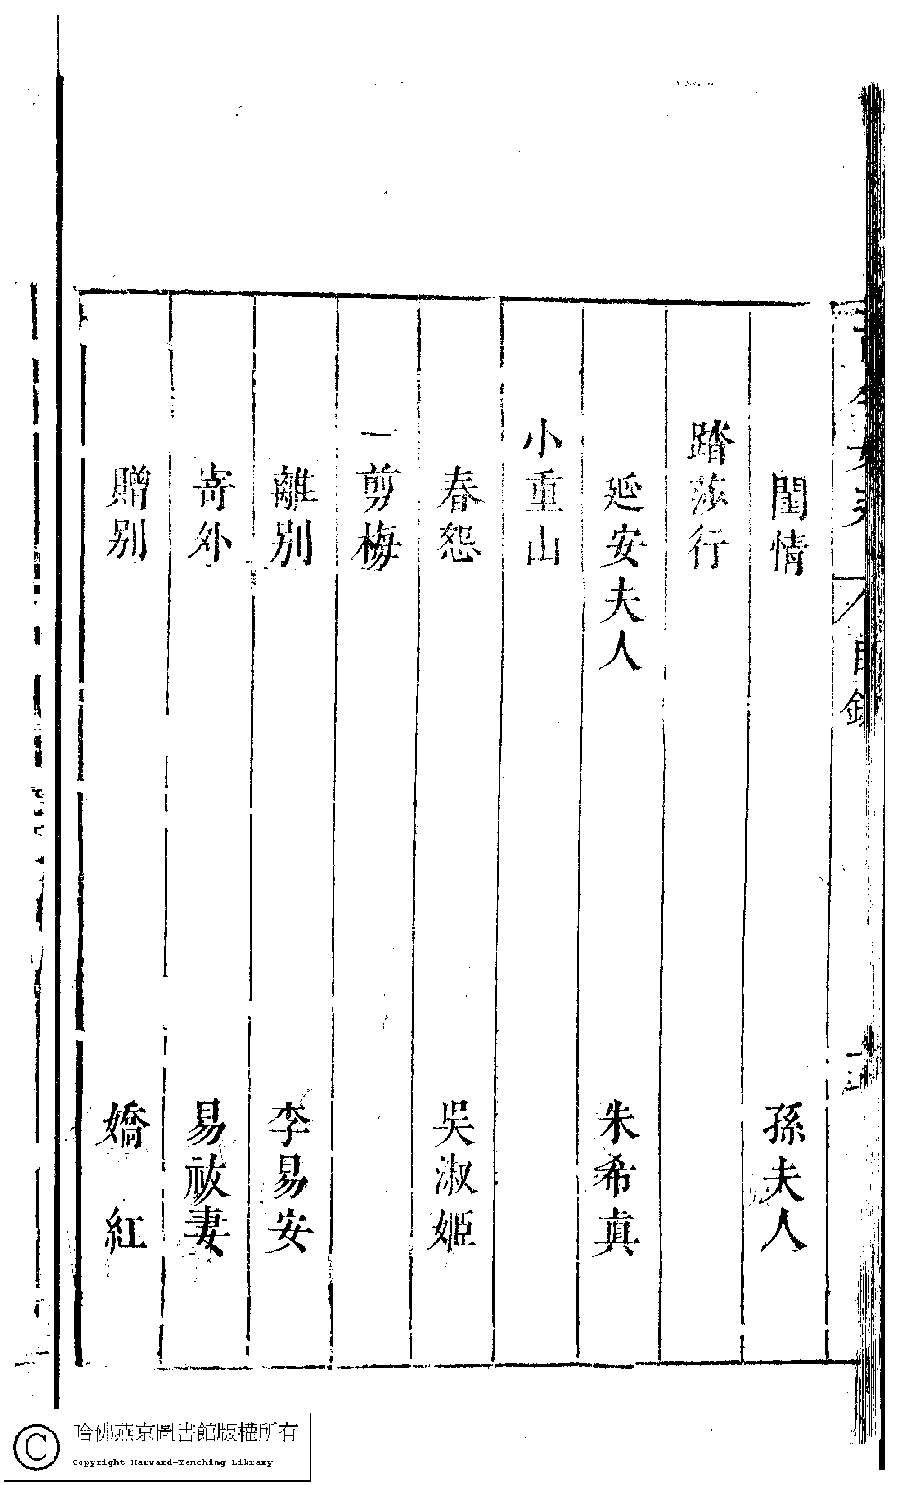 目錄
閨情 孫夫人
踏莎行
延安夫人 朱希真
小重山
春怨 吳淑姬
一剪梅
離別 李易安
寄外 易祓妻
贈别 嬌紅
哈佛燕京圖書館版權所有
Copyright Harvard-Yenching Library